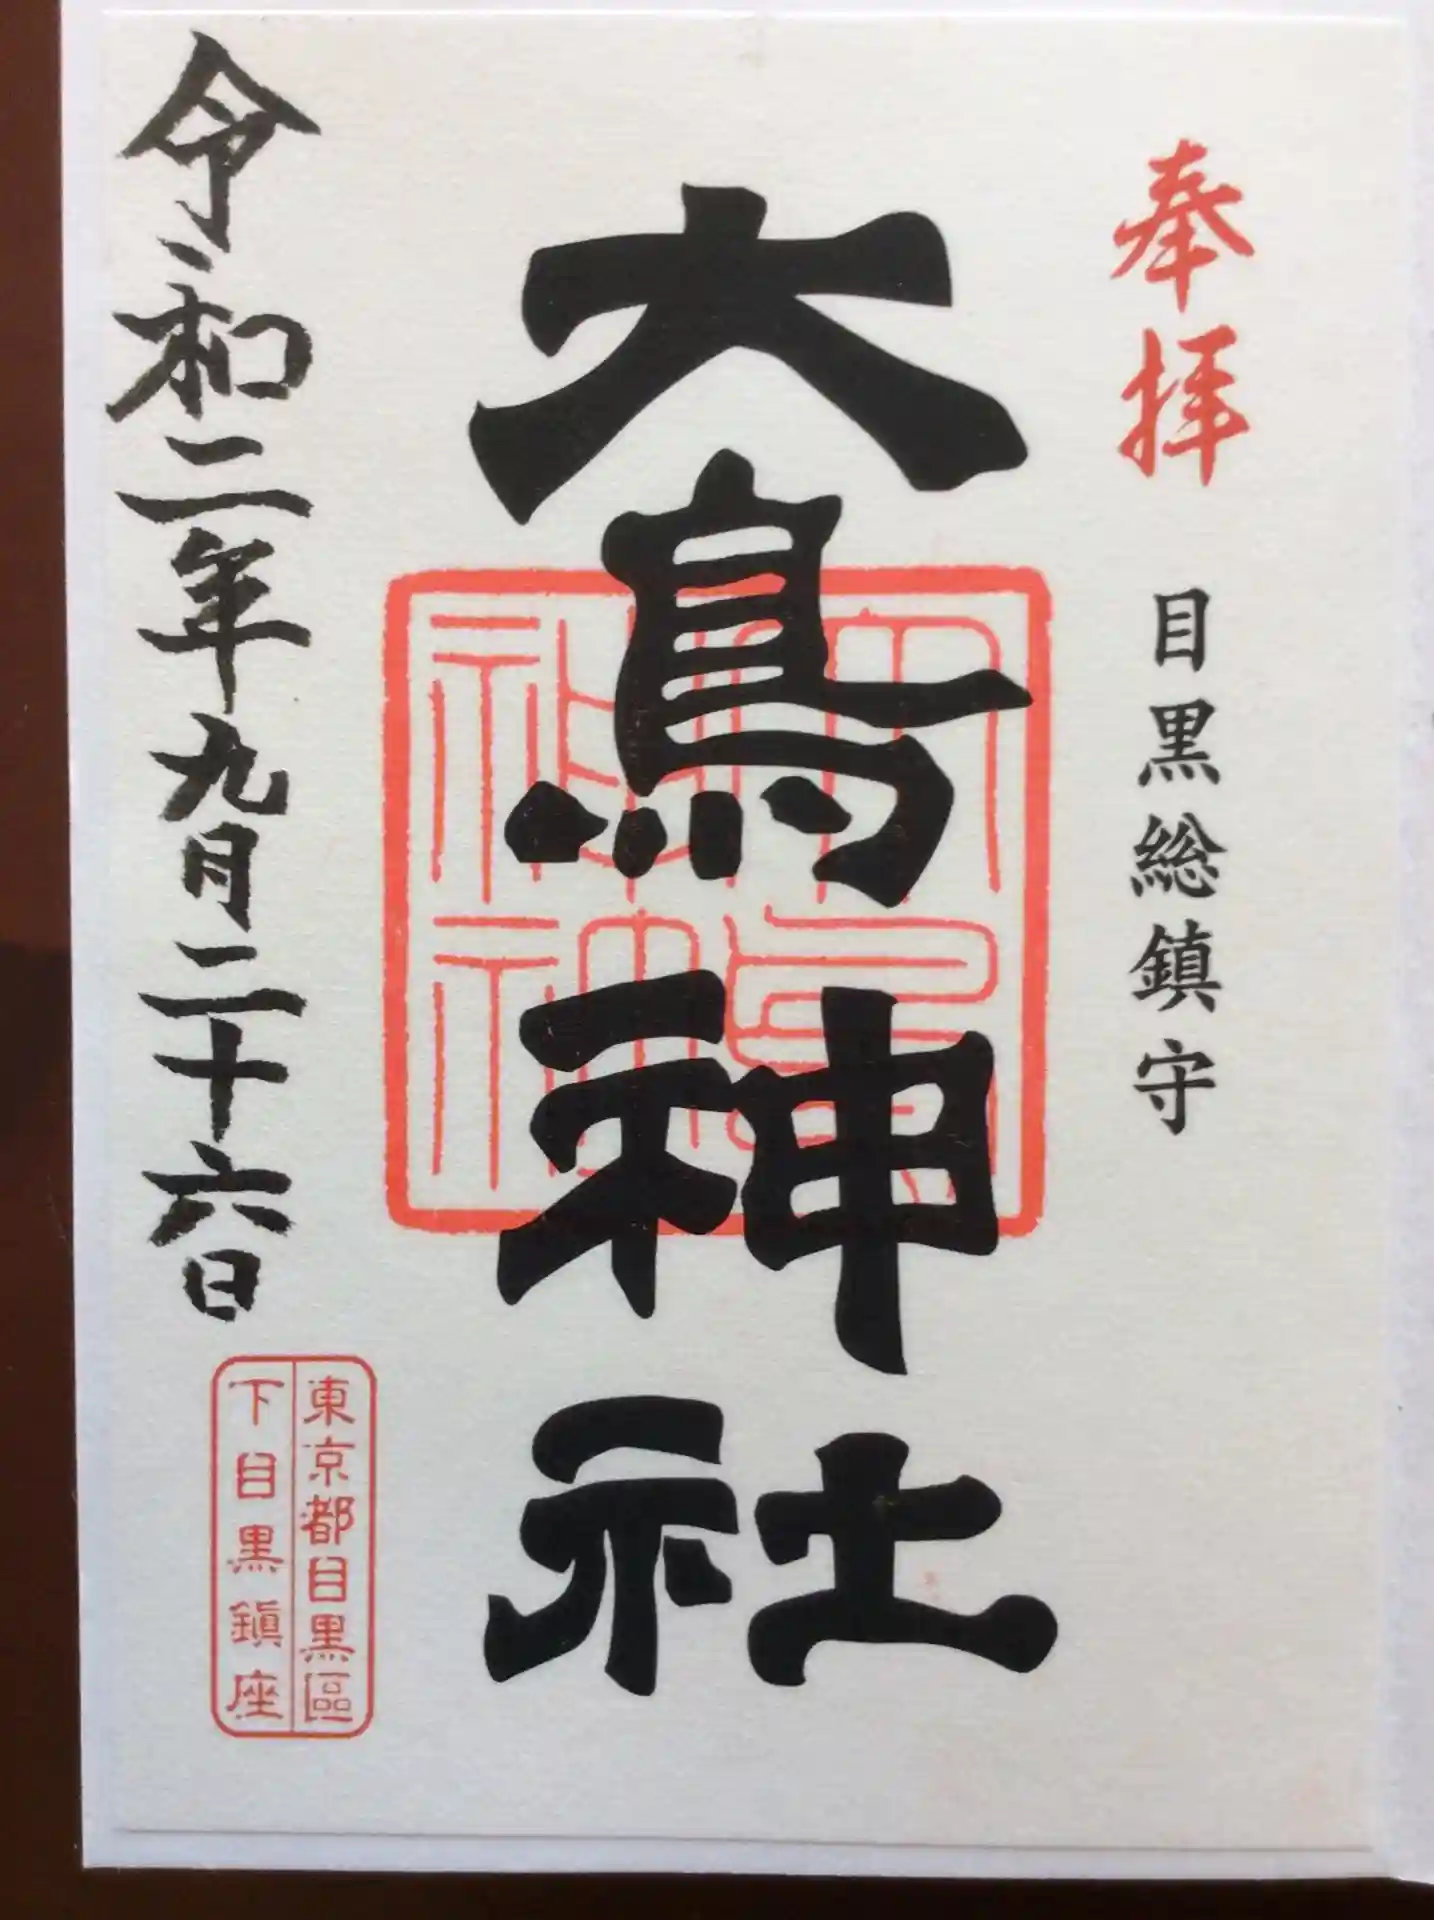 奉拝
目黒総鎮守
大鳥神社
令和二年九月二十六日
東京都目黒區
下目黒鎮座